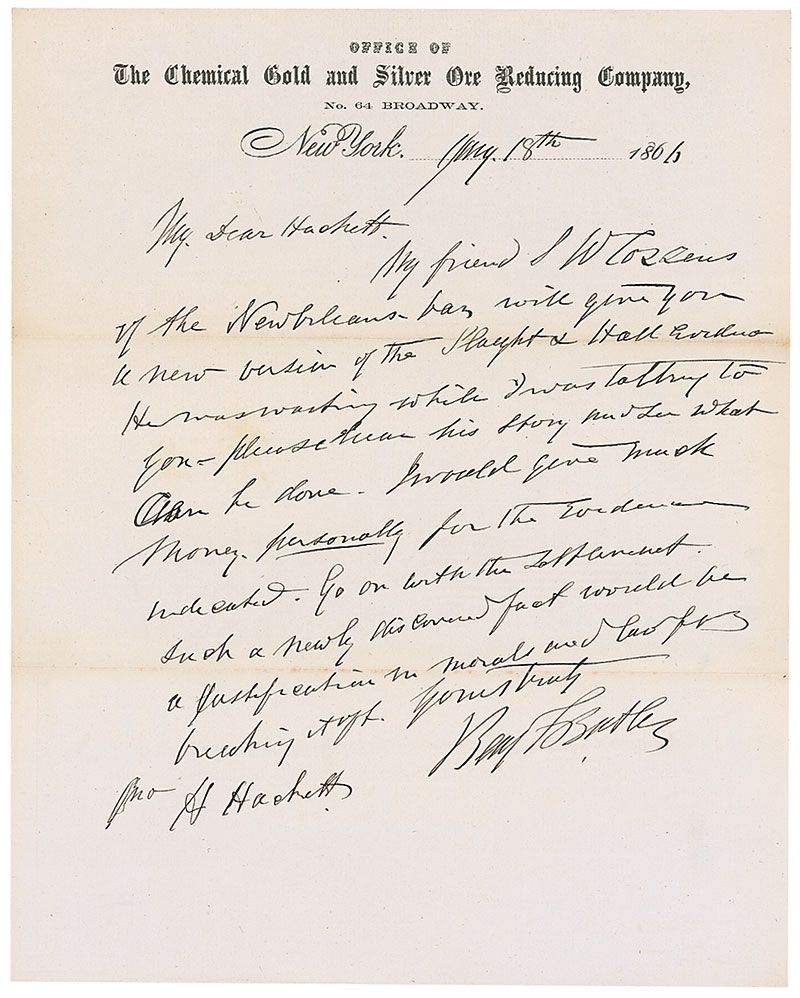 OFFICE OF
The Chemical Gold and Silver Ore Reducing Company,
No. 64 BROADWAY.
New York. 18th 1866
My Dear Hackett.
My friend S W Cozzens
of the New Orleans bar will give you
a new version of the Slaught & Hall Evidence
He was waiting while I was talking to
you - please hear his story and see what
can be done. I would give much
money personally for the Evidence
indicated. Go on with the settlement.
Such a newly discovered fact would be
a justification in morals and law for
breaking it off. Yours truly
Benj F Butler
Jno H Hackett